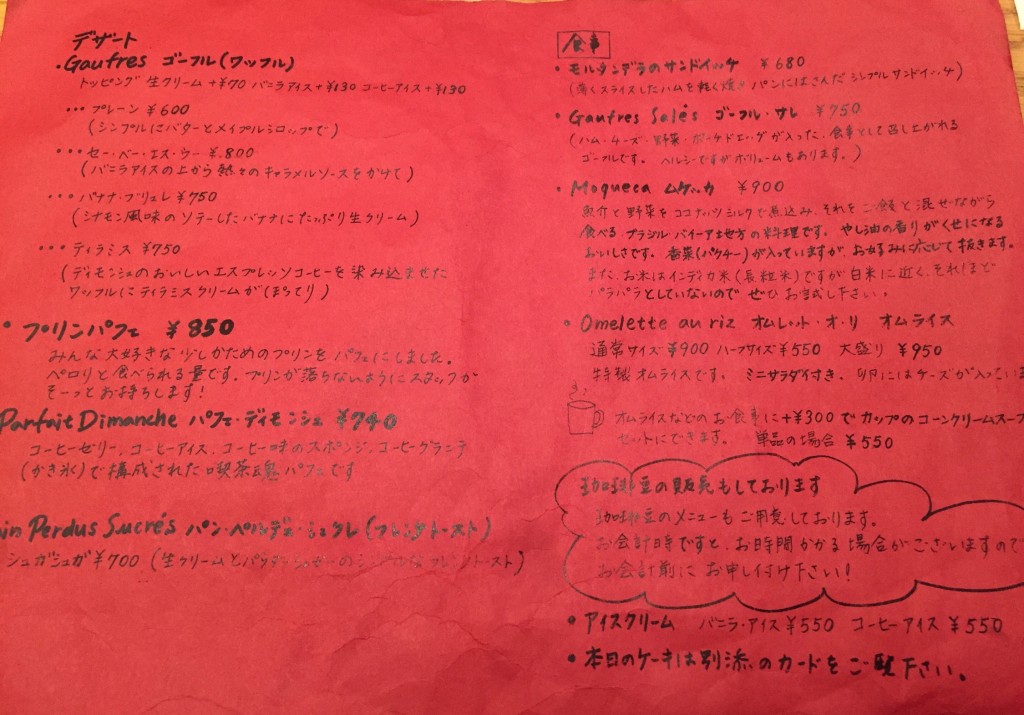 デザート
・Gaufres ゴーフル(ワッフル)
トッピング 生クリーム+¥70 バニラアイス+¥130 コーヒーアイス+¥130
・・・プレーン ¥600
(シンプルにバターとメイプルシロップで)
・・・セー・ベー・エス・ウー ¥800
(バニラアイスの上から熱々のキャラメルソースをかけて)
・・・バナナ・ブリュレ ¥750
(シナモン風味のソテーしたバナナにたっぷり生クリーム)
・・・ティラミス ¥750
(ディモンシュのおいしいエスプレッソコーヒーを染み込ませた
ワッフルにティラミスクリームがぽってり)
プリンパフェ ¥850
みんな大好きな少しかためのプリンをパフェにしました。
ペロリと食べられる量です。プリンが落ちないようにスタッフが
そーっとお持ちします!
Parfait Dimanche パフェ・ディモンシュ ¥740
コーヒーゼリー、コーヒーアイス、コーヒー味のスポンジ、コーヒーグランテ
(かき氷)で構成された喫茶魂パフェです
in Perdus Sucrés パン・ペルデュ・シュクレ(フレンチトースト)
シュガシュガ¥700 (生クリームとパウダーシュガーのシンプルなフレンチトースト)
食事
・モルタンデラのサンドイッチ ¥680
(薄くスライスしたハムを軽く焼きパンにはさんだシンプルサンドイッチ)
・Gaufres Salés ゴーフル・サレ ¥750
(ハム・チーズ・野菜・ポーチドエッグが入った、食事として召し上がれる
ゴーフルです。ヘルシーですがボリュームもあります。)
・Moqueca ムケッカ ¥900
魚介と野菜をココナッツミルクで煮込み、それをご飯と混ぜながら
食べる、ブラジル バイーア地方の料理です。やし油の香りがくせになる
おいしさです。香菜(パクチー)が入っていますが、お好みに応じて抜きます。
また、お米はインディカ米(長粒米)ですが白米に近く、それほど
パラパラとしていないのでぜひお試し下さい。
・Omelette au riz オムレット・オ・リ オムライス
通常サイズ¥900 ハーフサイズ¥550 大盛り ¥950
特製オムライスです。ミニサラダ付き、卵にはチーズが入っていま
オムライスなどのお食事に+¥300でカップのコーンクリームスープ
セットにできます。 単品の場合 ¥550
珈琲豆の販売もしております
珈琲豆のメニューもご用意しております。
お会計時ですと、お時間かかる場合がございますので
お会計前にお申し付け下さい!
・アイスクリーム バニラ・アイス¥550 コーヒーアイス¥550
・本日のケーキは別添のカードをご覧下さい。